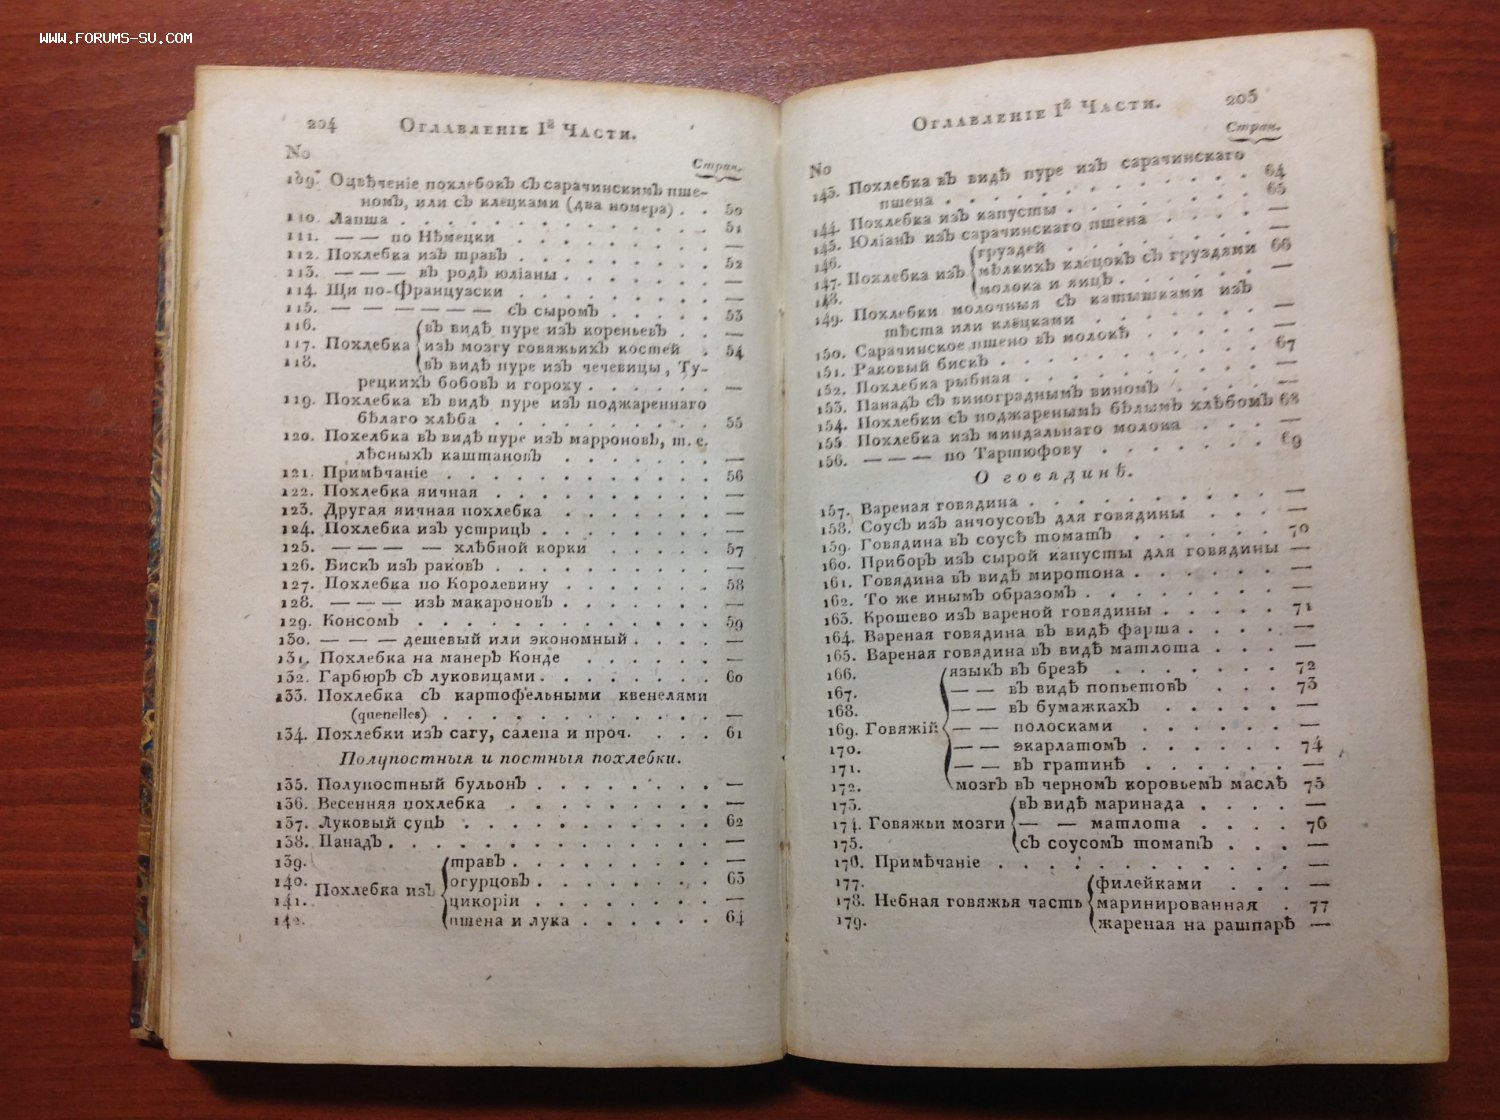 WWW.FORUMS-SU.COM
204 Оглавленіе Iй Части.
No Стран.
109. Оцвѣченіе похлебокъ съ сарачинскимъ пше-
номъ, или съ клецками (два номера) . . 50
110. Лапша . . . . . . . . . . 51
111. — — по Нѣмецки . . . . . . . —
112. Похлебка изъ травъ . . . . . . . 52
113. — — — въ родѣ юліаны . . . . . . —
114. Щи по-Французски . . . . . . . —
115. — — — — — — съ сыромъ . . . . . 53
116. (въ видѣ пуре изъ кореньевъ . . —
117. Похлебка {изъ мозгу говяжьихъ костей . 54
118. (въ видѣ пуре изъ чечевицы, Ту-
рецкихъ бобовъ и гороху . . . . . . —
119. Похлебка въ видѣ пуре изъ поджареннаго
бѣлаго хлѣба . . . . . . . . . 55
120. Похелбка въ видѣ пуре изъ марроновъ, т. е.
лѣсныхъ каштановъ . . . . . . . —
121. Примѣчаніе . . . . . . . . . . 56
122. Похлебка яичная . . . . . . . . —
123. Другая яичная похлебка . . . . . . —
124. Похлебка изъ устрицъ . . . . . . . —
125. — — — — хлѣбной корки . . . . . 57
126. Бискъ изъ раковъ . . . . . . . . —
127. Похлебка по Королевину . . . . . . 58
128. — — — изъ макароновъ . . . . . . —
129. Консомъ . . . . . . . . . . . 59
130. — — — дешевый или экономный . . . . —
131. Похлебка на манеръ Конде . . . . . —
132. Гарбюръ съ луковицами . . . . . . . 60
133. Похлебка съ картофельными квенелями
(quenelles) . . . . . . . . . . —
134. Похлебки изъ сагу, салепа и проч. . . . 61
Полупостныя и постныя похлебки.
135. Полупостный бульонъ . . . . . . . —
136. Весенняя похлебка . . . . . . . . —
137. Луковый супъ . . . . . . . . . 62
138. Панадъ . . . . . . . . . . . . —
139. (травъ . . . . . . . . —
140. Похлебка изъ {огурцовъ . . . . . . . 63
141. {цикоріи . . . . . . . —
142. (пшена и лука . . . . . . 64
Оглавленіе Iй Части. 205
No Стран.
143. Похлебка въ видѣ пуре изъ сарачинскаго
пшена . . . . . . . . . . 64
144. Похлебка изъ капусты . . . . . . . 65
145. Юліанъ изъ сарачинскаго пшена . . . . —
146. (груздей . . . . . . . —
147. Похлебка изъ {мѣлкихъ клецокъ съ груздями 66
148. (молока и яицъ . . . . . —
149. Похлебки молочныя съ катышками изъ
тѣста или клецками . . . . . . —
150. Сарачинское пшено въ молокѣ . . . . —
151. Раковый бискъ . . . . . . . . . 67
152. Похлебка рыбная . . . . . . . . —
153. Панадъ съ винограднымъ виномъ . . . —
154. Похлебки съ поджаренымъ бѣлымъ хлѣбомъ 68
155 Похлебка изъ миндальнаго молока . . . —
156. — — — по Тартюфову . . . . . . 69
О говядинѣ.
157. Вареная говядина . . . . . . . . —
158. Соусъ изъ анчоусовъ для говядины . . . —
159. Говядина въ соусѣ томатъ . . . . . 70
160. Приборъ изъ сырой капусты для говядины —
161. Говядина въ видѣ миротона . . . . . —
162. То же инымъ образомъ . . . . . . . —
163. Крошево изъ вареной говядины . . . . 71
164. Вареная говядина въ видѣ фарша . . . . —
165. Вареная говядина въ видѣ матлота . . . —
166. (языкъ въ брезѣ . . . . . . 72
167. — — въ видѣ попьетовъ . . . 73
168. — — въ бумажкахъ . . . . . —
169. Говяжій {— — полосками . . . . . . —
170. — — экарлатомъ . . . . . . 74
171. — — въ гратинѣ . . . . . . —
172. (мозгъ въ черномъ коровьемъ маслѣ 75
173. (въ видѣ маринада . . . . —
174. Говяжьи мозги {— — матлота . . . . 76
175. (съ соусомъ томатъ . . . —
176. Примѣчаніе . . . . . . . . . . —
177. (филейками . . . —
178. Небная говяжья часть {маринированная . 77
179. (жареная на рашпарѣ —